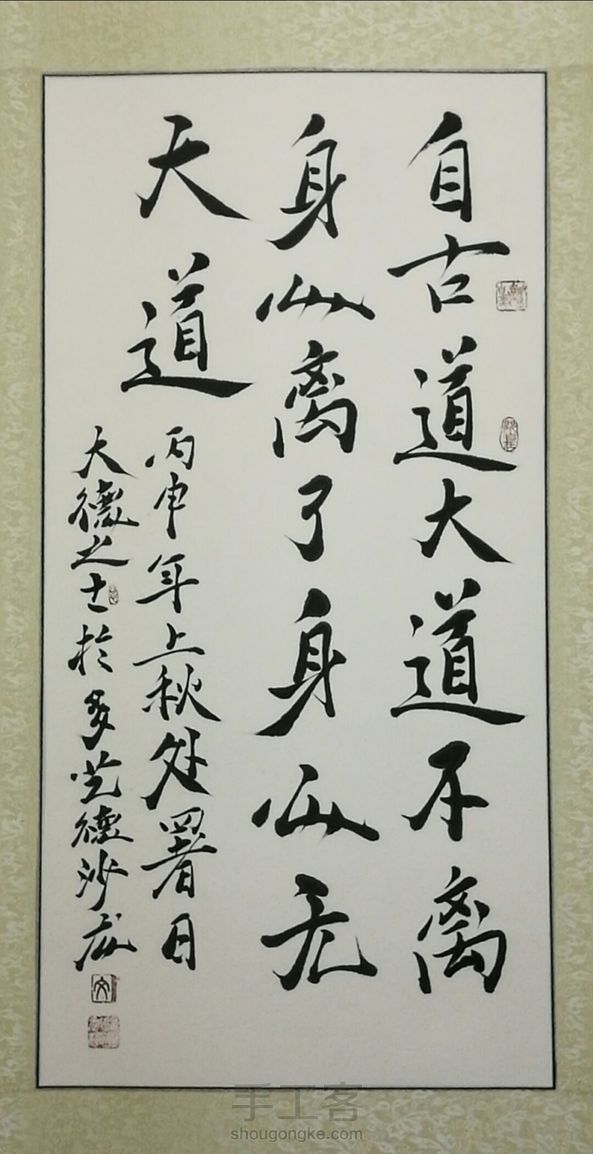 自古道大道不离
身心离了身心无
天道
丙申年上秋处署日
大德之士於多艺德沙龙
手工客
shougongke.com